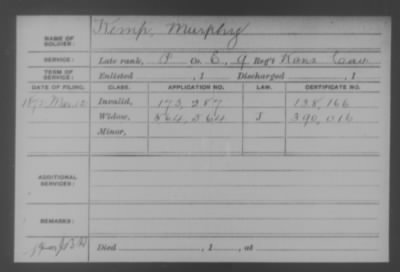 NAME OF SOLDIER: Kemp, Murphy
SERVICE: Late rank, P Co. C, 9 Reg't Kans Cav
TERM OF SERVICE: Enlisted , 1 Discharged , 1
DATE OF FILING. CLASS. APPLICATION NO. LAW. CERTIFICATE NO.
187 Mar 12 Invalid, 173,287 138,166
Widow, 564,564 J 390,016
Minor,
ADDITIONAL SERVICES:
REMARKS:
Died , 1 , at